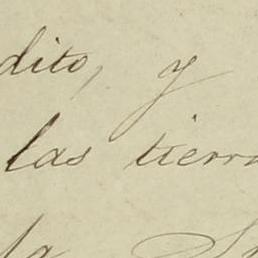 dito, y
las tierra
la